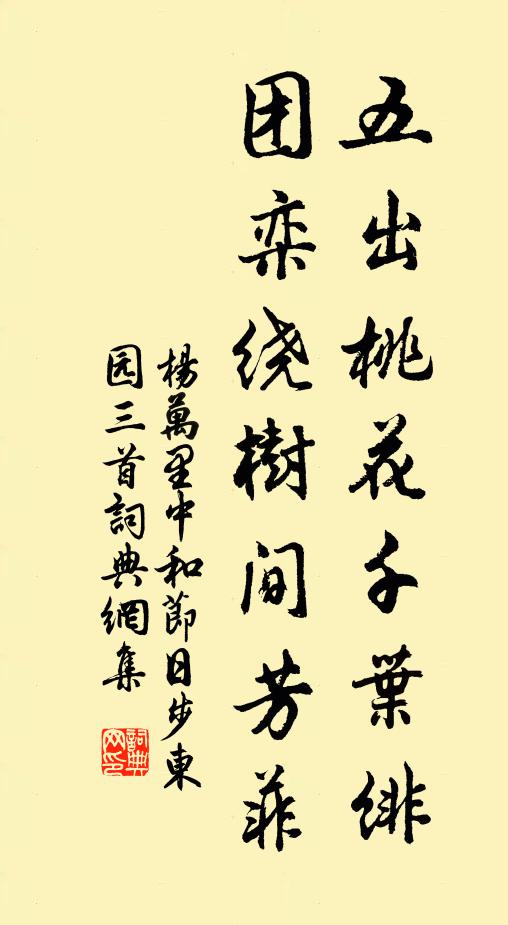 五出桃花千葉緋
团栾绕樹间芳菲
楊萬里中和節日步東
园三首詞典網集
詞典网印